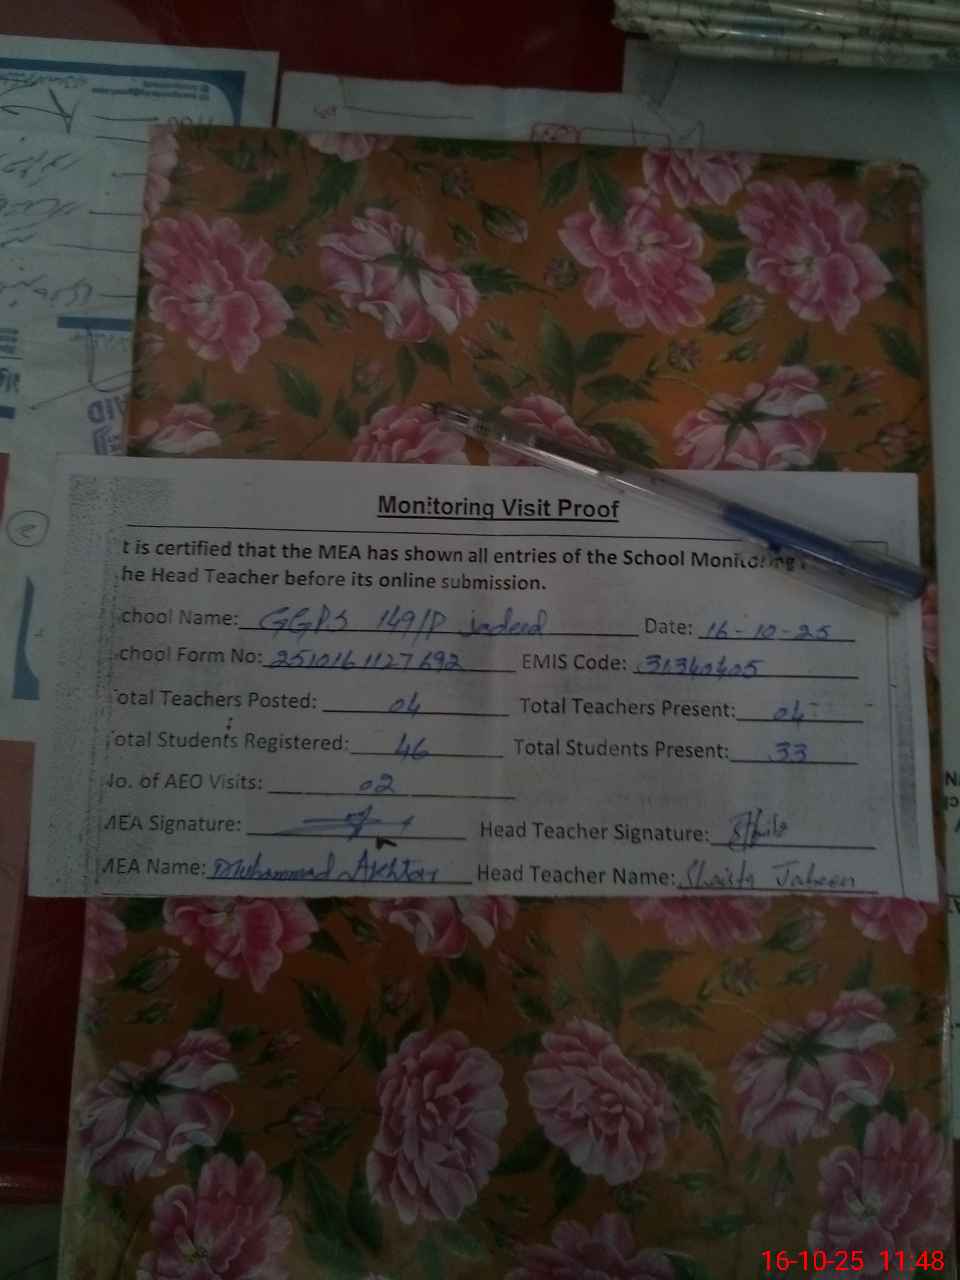 Monitoring Visit Proof
t is certified that the MEA has shown all entries of the School Monitoring
he Head Teacher before its online submission.
chool Name: GGPS 149/P jadeed Date: 16-10-25
chool Form No: 2510161127692 EMIS Code: 31340405
otal Teachers Posted: 04 Total Teachers Present: 04
otal Students Registered: 46 Total Students Present: 33
No. of AEO Visits: 02
MEA Signature: Head Teacher Signature:
MEA Name: Muhammad Akhtar Head Teacher Name: Shaista Jabeen
16-10-25 11:48